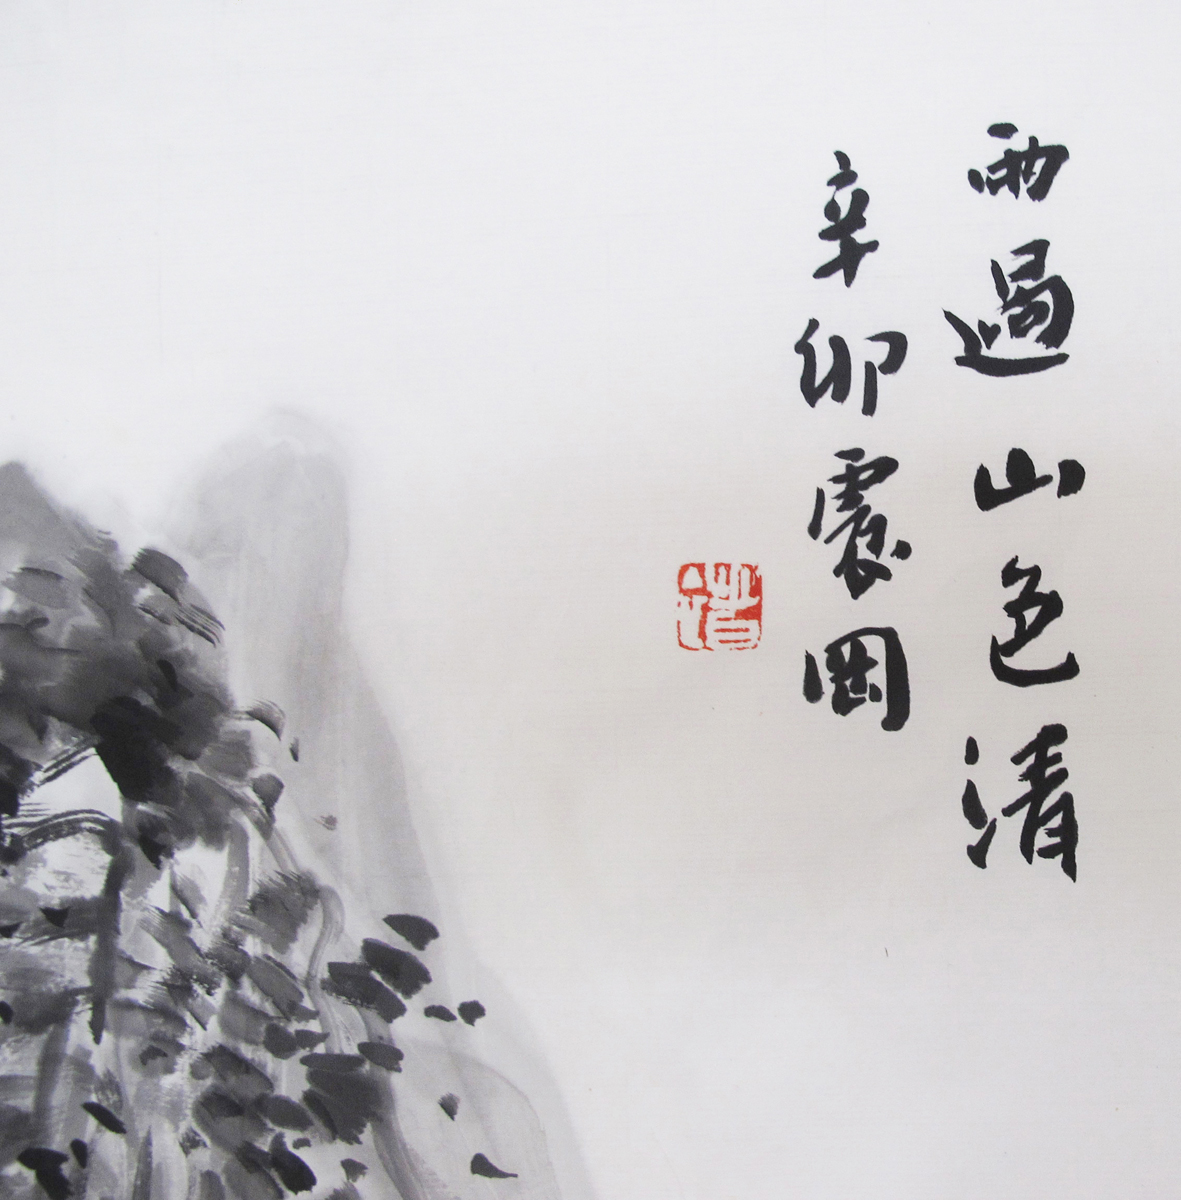 雨過山色清
辛卯震岡